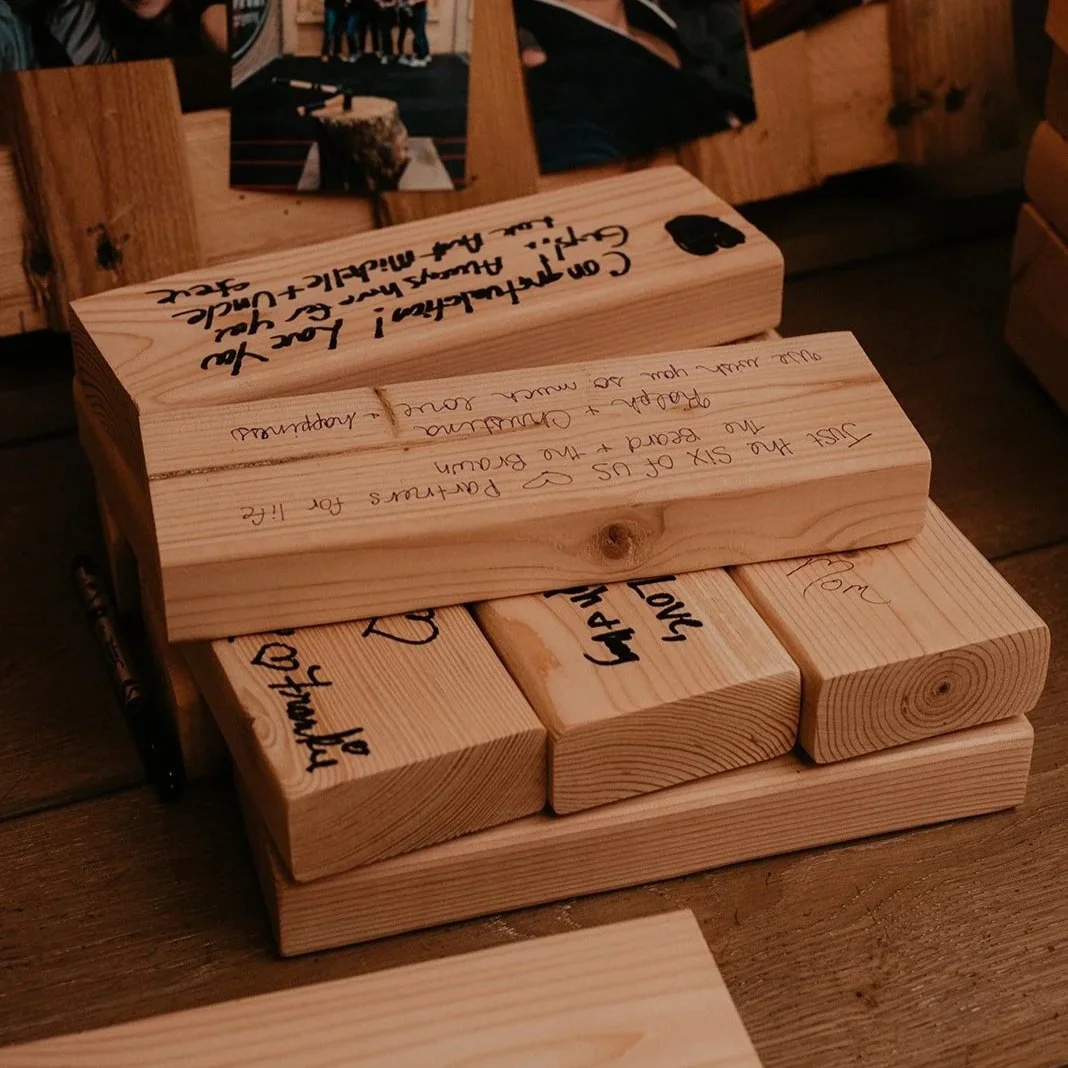 Congratualction! Love You
Guys!! Always here for you
Love Aunt Michelle + Uncle
Steve
Just the SIX of US ♡ Partners for life
The Beard + the Brawn
Ralph + Christina
We wish you so much love + happiness
Love,